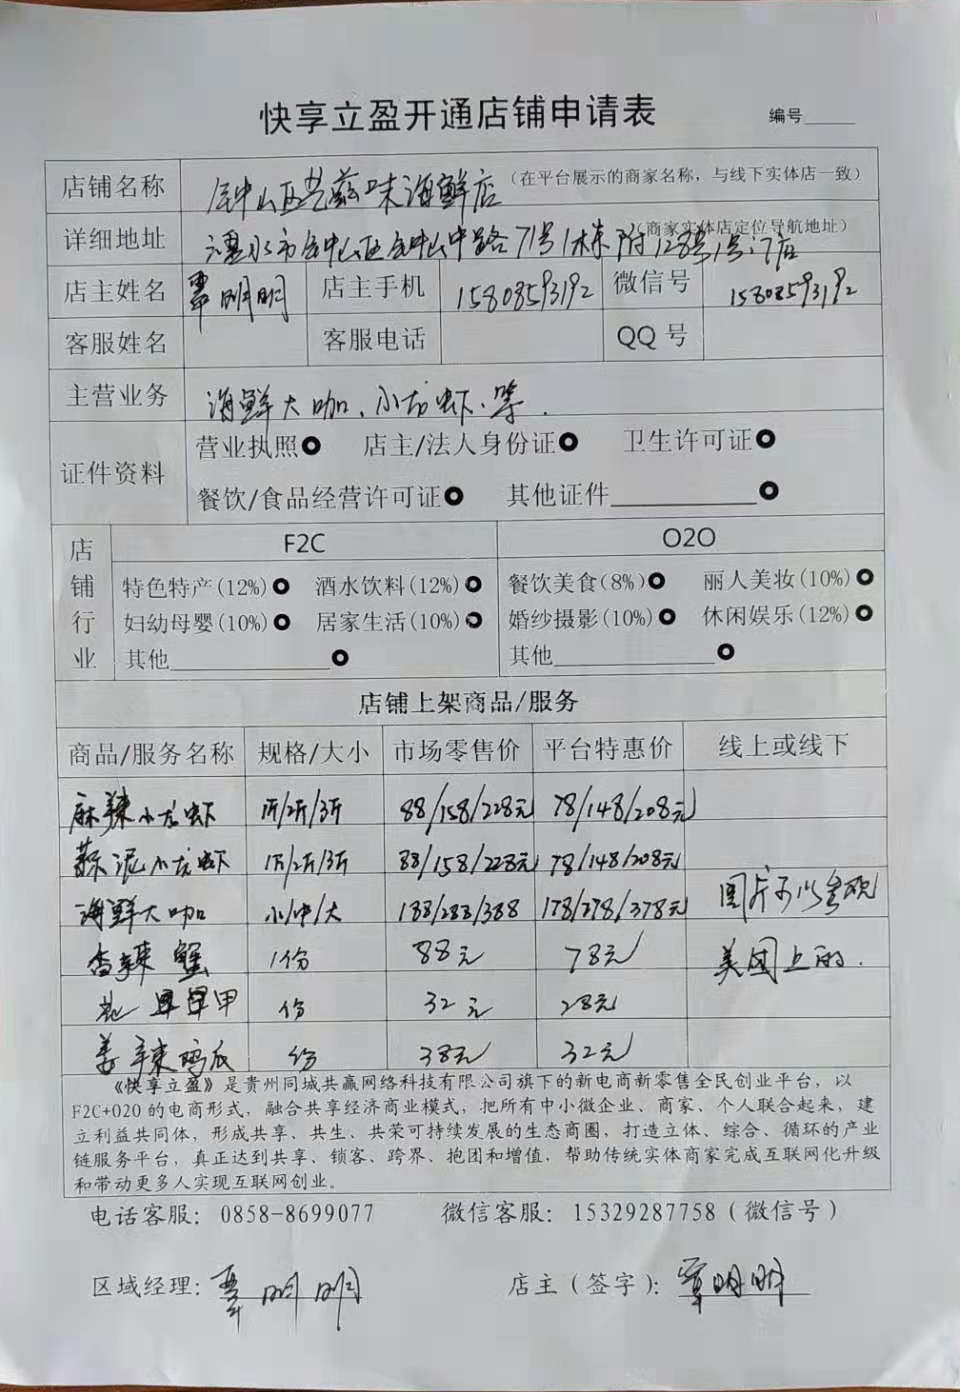 快享立盈开通店铺申请表
编号
店铺名称 钟山区艺滋味海鲜店 (在平台展示的商家名称，与线下实体店一致)
详细地址 六盘水市钟山区钟山中路71号1栋附128号1号门店 (商家实体店定位导航地址)
店主姓名 覃明明 店主手机 15808593192 微信号 15808593192
客服姓名 客服电话 QQ号
主营业务 海鲜大咖、小龙虾、等.
证件资料
营业执照 店主/法人身份证 卫生许可证
餐饮/食品经营许可证 其他证件
店铺行业
F2C O2O
特色特产(12%) 酒水饮料(12%) 餐饮美食(8%) 丽人美妆(10%)
妇幼母婴(10%) 居家生活(10%) 婚纱摄影(10%) 休闲娱乐(12%)
其他 其他
店铺上架商品/服务
商品/服务名称 规格/大小 市场零售价 平台特惠价 线上或线下
麻辣小龙虾 1斤/2斤/3斤 88/158/228元 78/148/208元
蒜泥小龙虾 1斤/2斤/3斤 88/158/228元 78/148/208元
海鲜大咖 小/中/大 188/288/388 178/278/378元 图片可以参观
香辣蟹 1份 88元 78元 美团上的.
份 32元 28元
姜辣鸡爪 份 38元 32元
《快享立盈》是贵州同城共赢网络科技有限公司旗下的新电商新零售全民创业平台，以
F2C+O2O的电商形式，融合共享经济商业模式，把所有中小微企业、商家、个人联合起来，建
立利益共同体，形成共享、共生、共荣可持续发展的生态商圈，打造立体、综合、循环的产业
链服务平台，真正达到共享、锁客、跨界、抱团和增值，帮助传统实体商家完成互联网化升级
和带动更多人实现互联网创业。
电话客服：0858-8699077 微信客服：15329287758(微信号)
区域经理：覃明明 店主(签字)：覃明明